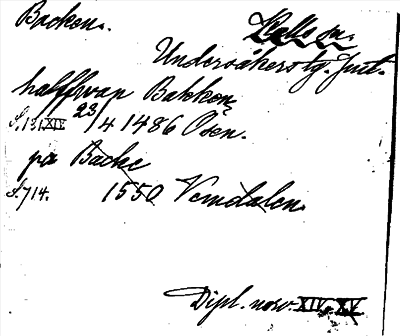 Backen. Halls sn.
Undersåkers tg. Jmt.
halffwan Bakken
S.131.XIV 23/4 1486 Osen.
pa Backe
S.714. 1550 Vemdalen.
Dipl. norv. XIV, XV